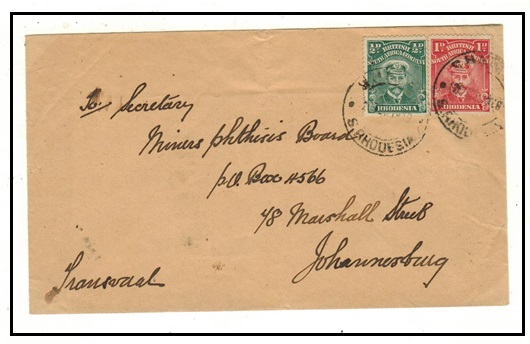 ½D BRITISH ½D
SOUTH AFRICA COMPANY
RHODESIA
1D BRITISH 1D
SOUTH AFRICA COMPANY
RHODESIA
S. RHODESIA
To Secretary
Miners Phthisis Board
P.O. Box 4566
48 Marshall Street
Johannesburg
Transvaal